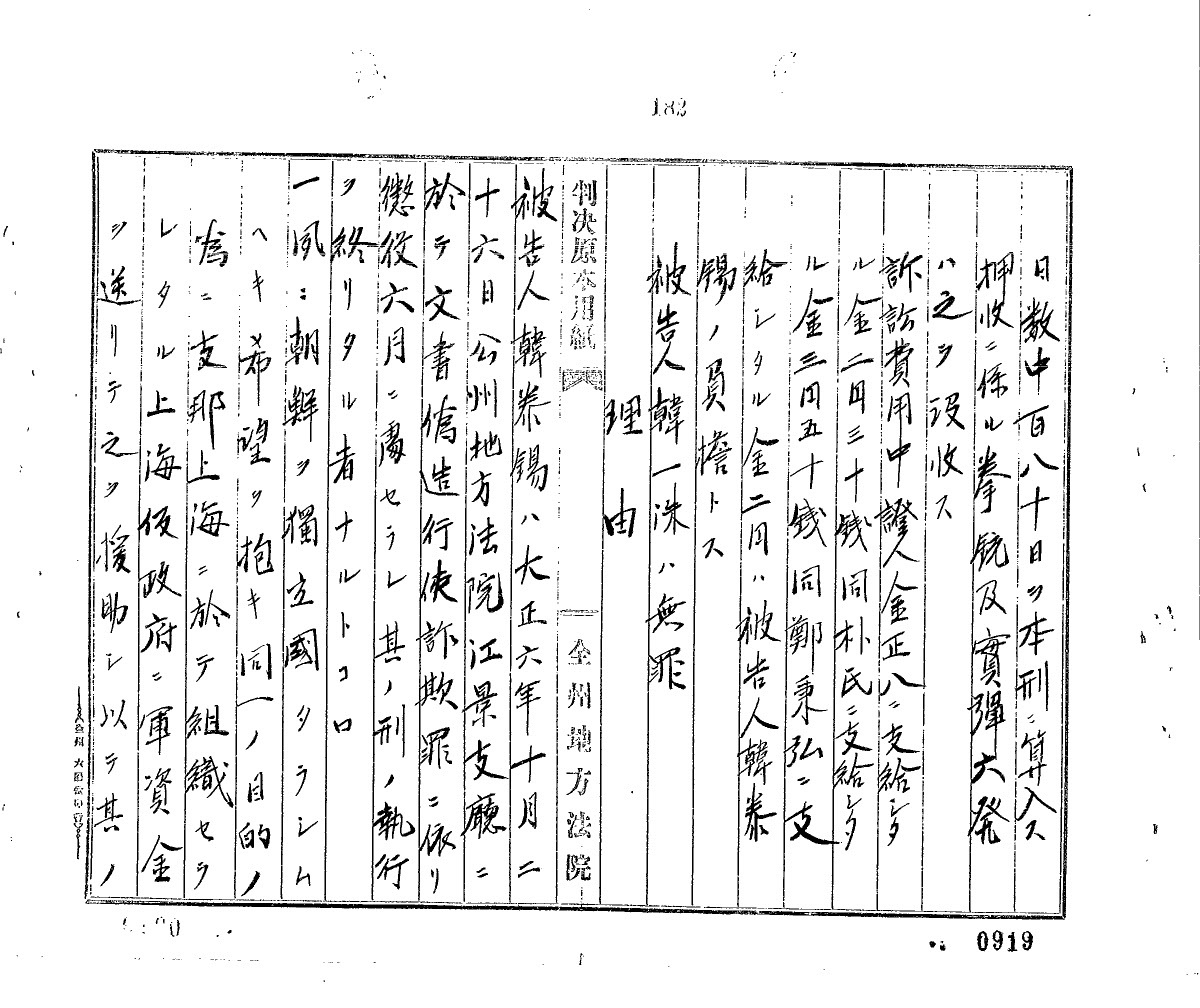 182
日数中百八十日ヲ本刑ニ算入ス
押收ニ係ル拳銃及實彈六発
ハ之ヲ没收ス
訴訟費用中證人金正八ニ支給シタ
ル金二円三十銭同朴氏ニ支給シタ
ル金三円五十銭同鄭秉弘ニ支
給シタル金二円ハ被告人韓泰
錫ノ負擔トス
被告人韓一洙ハ無罪
理由
判決原本用紙
全州地方法院
被告人韓泰錫ハ大正六年十月二
十六日公州地方法院江景支廳ニ
於テ文書僞造行使詐欺罪ニ依リ
懲役六月ニ處セラレ其ノ刑ノ執行
ヲ終リタル者ナルトコロ
一夙ニ朝鮮ヲ獨立國タラシム
ヘキ希望ヲ抱キ同一ノ目的ノ
為ニ支那上海ニ於テ組織セラ
レタル上海仮政府ニ軍資金
ヲ送リテ之ヲ援助シ以テ其ノ
0919